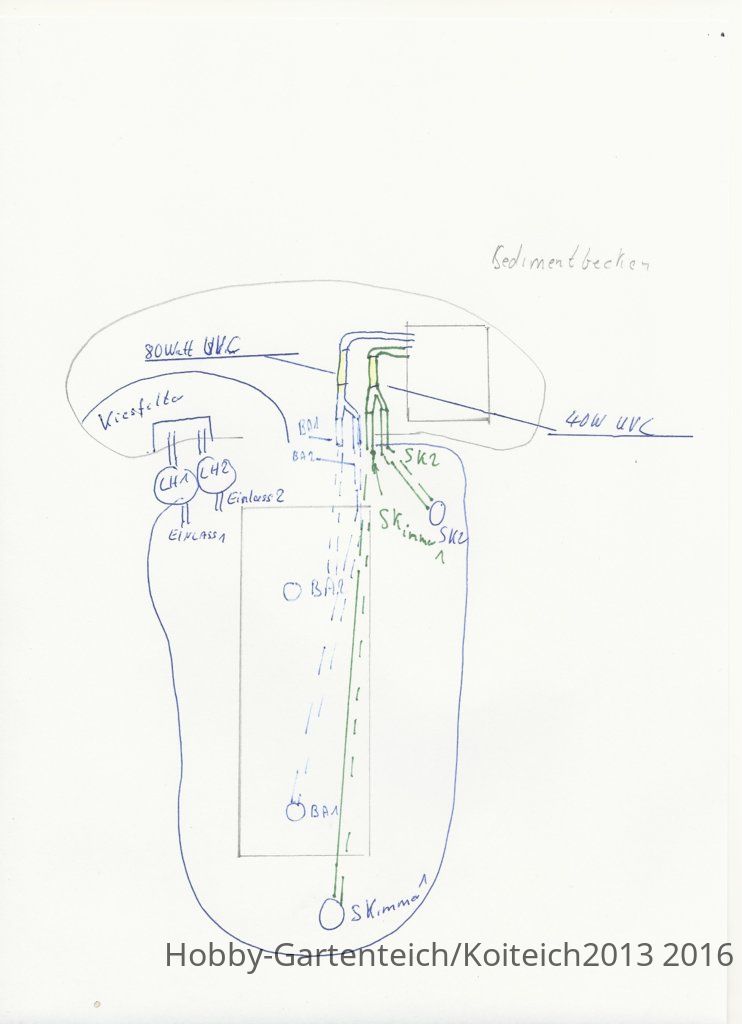 Sedimentbecken
80Watt UVC
Kiesfilter
40W UVC
BA1
BA2
SK2
LH1
LH2
Einlass2
EINLASS1
SKimmer
1
SK2
BA2
BA1
SKimmer 1
Hobby-Gartenteich/Koiteich2013 2016